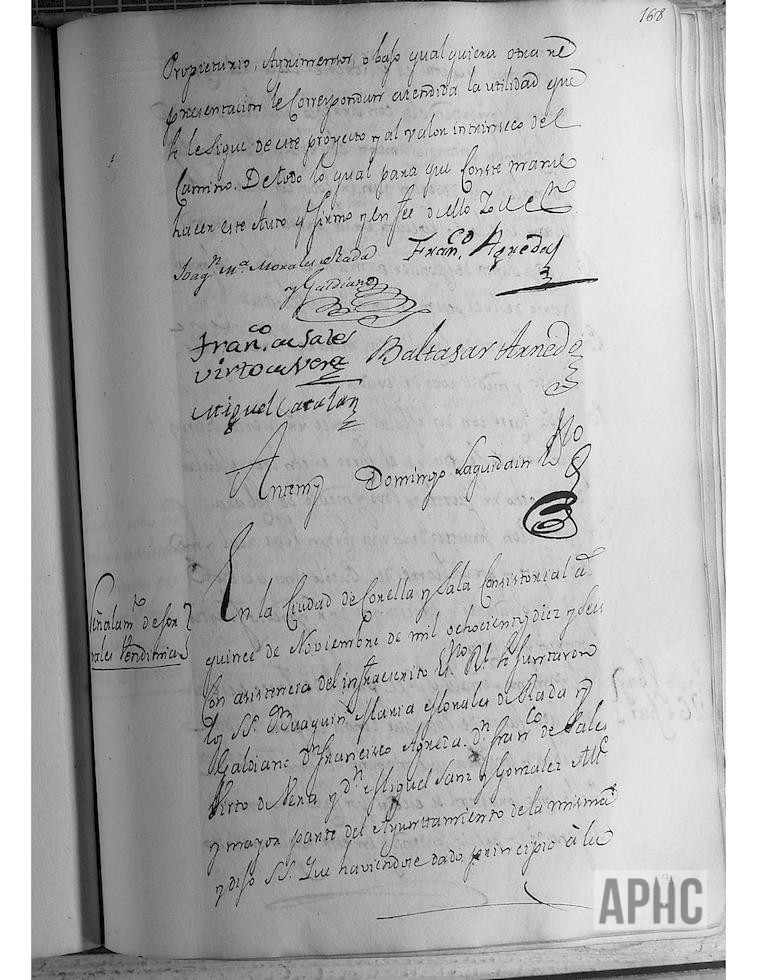 168
Propietario, Ayuntamentos, o bajo qualquiera otra re
presentacion le Correspondan atendida la utilidad que
se le sigue de este proyecto y al valor intrinseco del
Camino. De todo lo qual para que Conste mande
hacer este Auto y firmo y en fee de ello Yo el
Joaqn. Ma. Morales de Rada
y Galdiano
Franco. Agreda
Franco. de Sales
Virto de Vera
Baltasar Arnedo
Miguel Catalan
Antemi Domingo Laguidain
Señalamto. de jor
nales Vendimias
En la Ciudad de Corella y Sala Consistorial a
quince de Noviembre de mil ochocientos y diez y seis
Con asistencia del infraescrito Essno. Rl. se juntaron
los SS. Dn. Joaquin Maria Morales de Rada y
Galdiano Dn. Francisco Agreda, Dn. Franco. de Sales
Virto de Vera y Dn. Miguel Sanz y Gonzalez Alle.
y mayor parte del Ayuntamiento de la misma
y dijo SS. Que haviendose dado principio à la
APHC